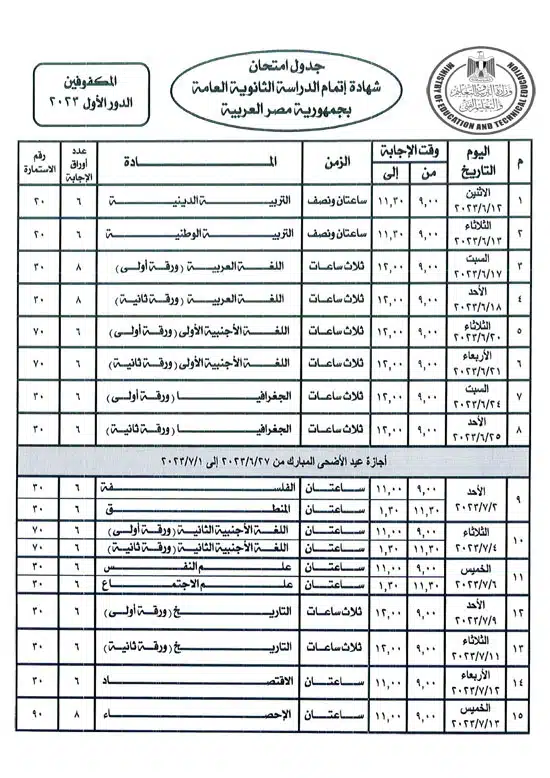 جدول امتحان
شهادة إتمام الدراسة الثانوية العامة
بجمهورية مصر العربية
المكفوفين
الدور الأول ٢٠٢٣
MINISTRY OF EDUCATION AND TECHNICAL EDUCATION
م اليوم التاريخ وقت الإجابة من إلى الزمن المادة عدد أوراق الإجابة رقم الاستمارة
١ الاثنين ٢٠٢٣/٦/١٢ ٩,٠٠ ١١,٣٠ ساعتان ونصف التربية الدينية ٦ ٢٠
٢ الثلاثاء ٢٠٢٣/٦/١٣ ٩,٠٠ ١١,٣٠ ساعتان ونصف التربية الوطنية ٦ ٢٠
٣ السبت ٢٠٢٣/٦/١٧ ٩,٠٠ ١٢,٠٠ ثلاث ساعات اللغة العربية (ورقة أولى) ٨ ٣٠
٤ الأحد ٢٠٢٣/٦/١٨ ٩,٠٠ ١٢,٠٠ ثلاث ساعات اللغة العربية (ورقة ثانية) ٨ ٣٠
٥ الثلاثاء ٢٠٢٣/٦/٢٠ ٩,٠٠ ١٢,٠٠ ثلاث ساعات اللغة الأجنبية الأولى (ورقة أولى) ٦ ٧٠
٦ الأربعاء ٢٠٢٣/٦/٢١ ٩,٠٠ ١٢,٠٠ ثلاث ساعات اللغة الأجنبية الأولى (ورقة ثانية) ٦ ٧٠
٧ السبت ٢٠٢٣/٦/٢٤ ٩,٠٠ ١٢,٠٠ ثلاث ساعات الجغرافيا (ورقة أولى) ٦ ٣٠
٨ الأحد ٢٠٢٣/٦/٢٥ ٩,٠٠ ١٢,٠٠ ثلاث ساعات الجغرافيا (ورقة ثانية) ٦ ٣٠
أجازة عيد الأضحى المبارك من ٢٠٢٣/٦/٢٧ إلى ٢٠٢٣/٧/١
٩ الأحد ٢٠٢٣/٧/٢ ٩,٠٠ ١١,٠٠ ساعتان الفلسفة ٦ ٣٠
١١,٣٠ ١,٣٠ ساعتان المنطق ٦ ٣٠
١٠ الثلاثاء ٢٠٢٣/٧/٤ ٩,٠٠ ١١,٠٠ ساعتان اللغة الأجنبية الثانية (ورقة أولى) ٦ ٧٠
١١,٣٠ ١,٣٠ ساعتان اللغة الأجنبية الثانية (ورقة ثانية) ٦ ٧٠
١١ الخميس ٢٠٢٣/٧/٦ ٩,٠٠ ١١,٠٠ ساعتان علم النفس ٦ ٣٠
١١,٣٠ ١,٣٠ ساعتان علم الاجتماع ٦ ٣٠
١٢ الأحد ٢٠٢٣/٧/٩ ٩,٠٠ ١٢,٠٠ ثلاث ساعات التاريخ (ورقة أولى) ٦ ٣٠
١٣ الثلاثاء ٢٠٢٣/٧/١١ ٩,٠٠ ١٢,٠٠ ثلاث ساعات التاريخ (ورقة ثانية) ٦ ٣٠
١٤ الأربعاء ٢٠٢٣/٧/١٢ ٩,٠٠ ١١,٠٠ ساعتان الاقتصاد ٦ ٣٠
١٥ الخميس ٢٠٢٣/٧/١٣ ٩,٠٠ ١١,٠٠ ساعتان الإحصاء ٨ ٩٠